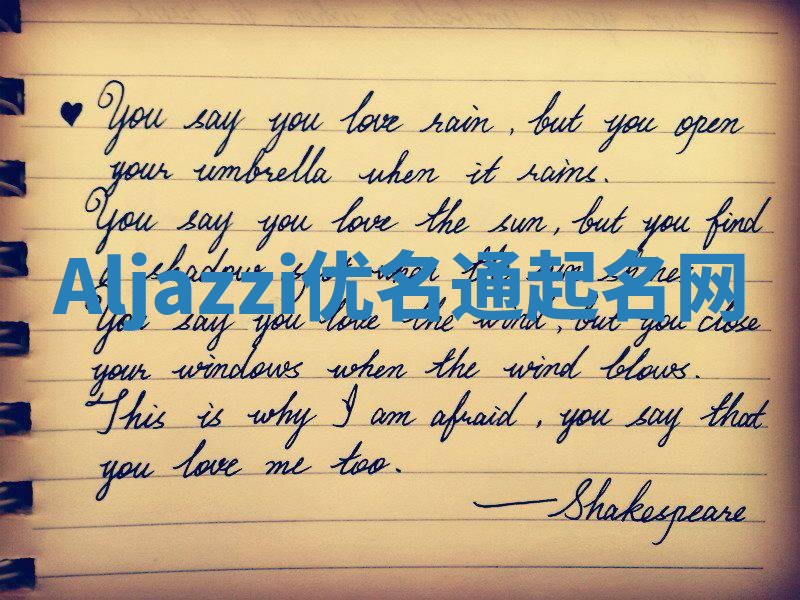 ♥ You say you love rain, but you open
your umbrella when it rains.
You say you love the sun, but you find
a shadow spot when the sun shines.
Aljazzi优名通起名网
You say you love the wind, but you close
your windows when the wind blows.
This is why I am afraid, you say that
you love me too.
— Shakespeare